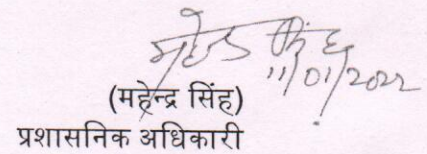 महेन्द्र सिंह
11/01/2022
(महेन्द्र सिंह)
प्रशासनिक अधिकारी